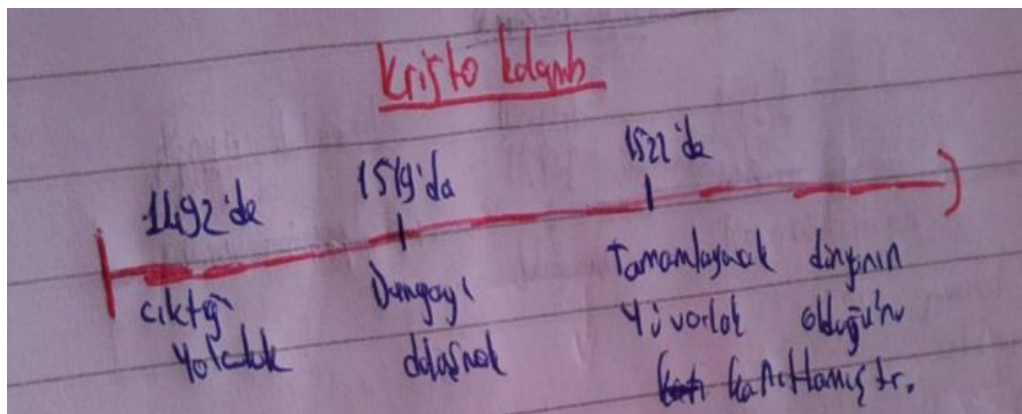 Kristo Kolomb
1492'de
1519'da
1522'de
çıktığ
yolculuk
Dünyayı
dolaşmak
Tamamlayarak dünyanın
yuvarlak olduğu'nu
kanıtlamıştr.